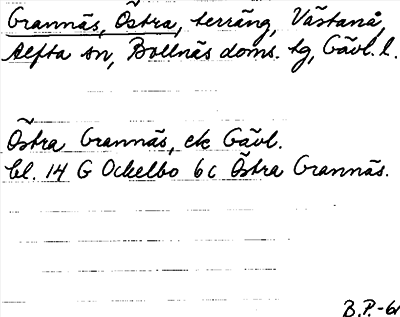 Grannäs, Östra, terräng, Västanå,
Alfta sn, Bollnäs doms. tg, Gävl. l.
Östra Grannäs, ek Gävl.
bl. 14 G Ockelbo 6 c Östra Grannäs.
B.P.-61